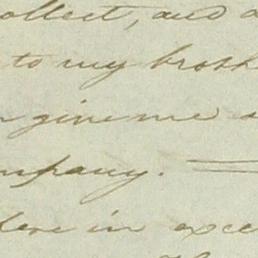 ollect, and a
to my broth
give me a
mpany. =
here in exce